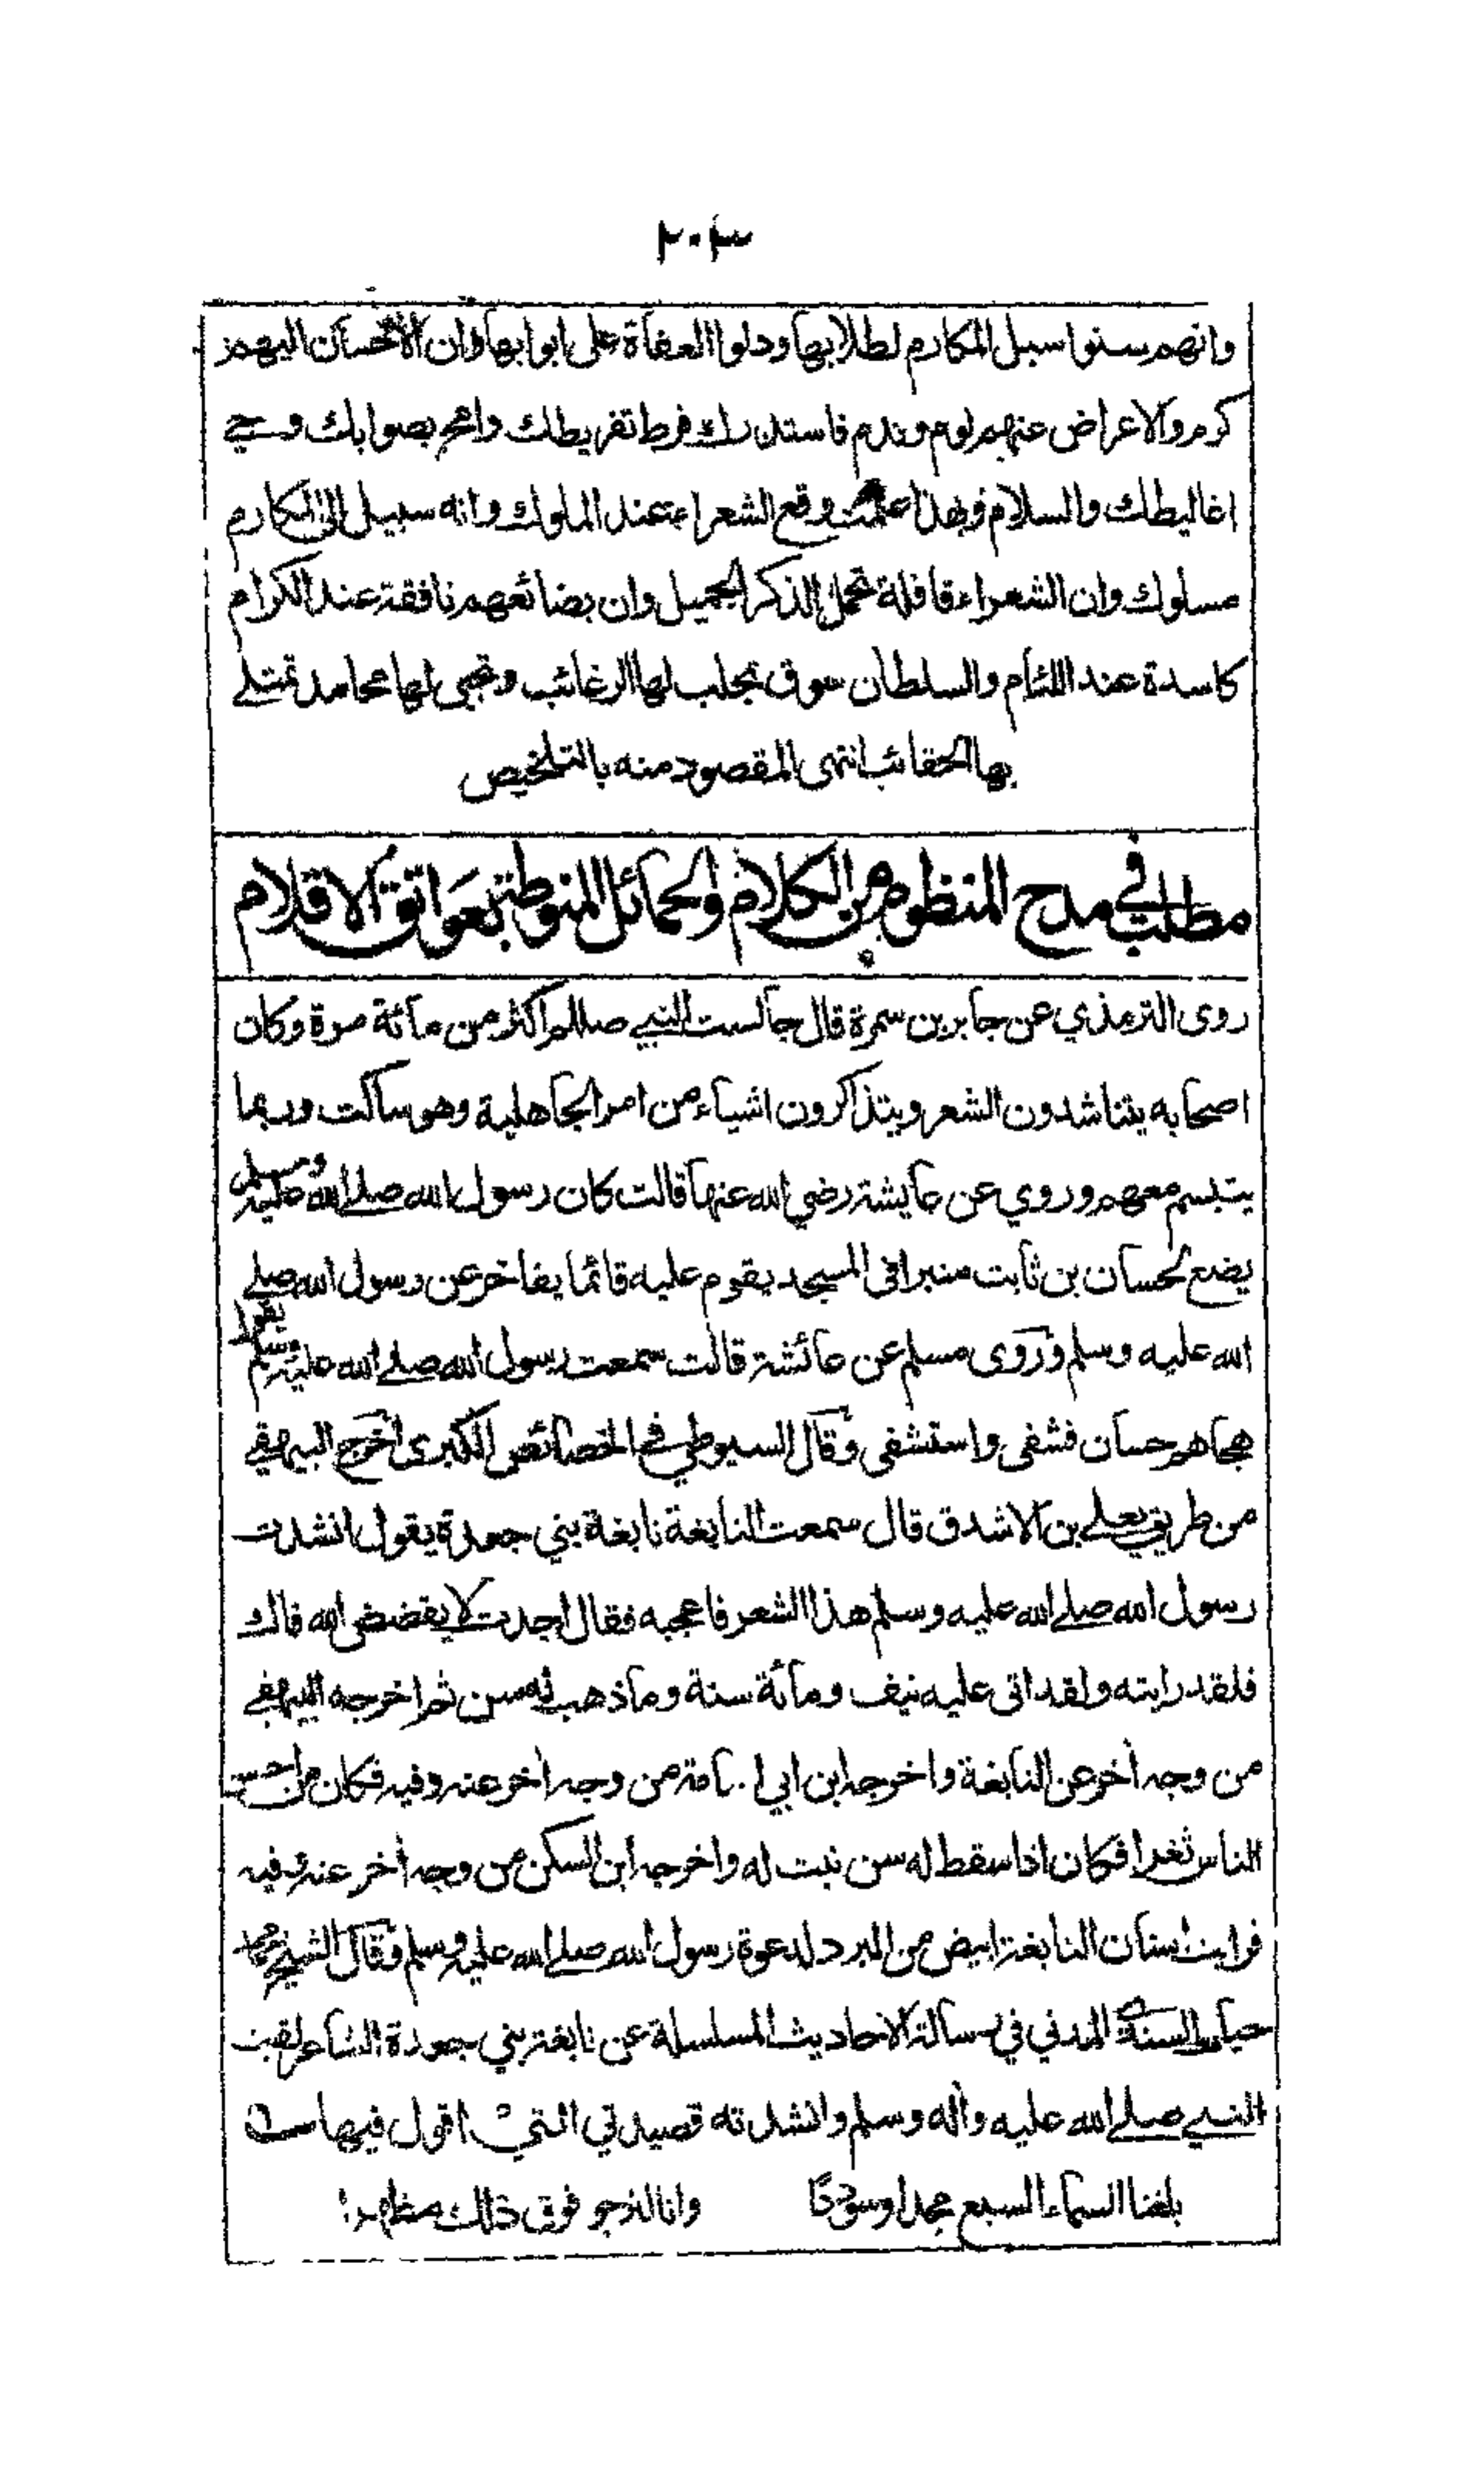 ٢٠٣
وانهم سنوا سبل المكارم لطلابها ودلوا العفاة على ابوابها وان الاحسان اليهم
كرم والاعراض عنهم لوم وندم فاستدرك فرط تفريطك وامح بصوابك وحي
اغاليطك والسلام وبهذا علمت وقع الشعراء عند الملوك وانه سبيل الى المكارم
مسلوك وان الشعراء قافلة تحمل الذكر الجميل وان بضائعهم نافقة عند الكرام
كاسدة عند اللئام والسلطان سوق تجلب لها الرغائب وتجبى لها محامد تمتلي
بها الحقائب انتهى المقصود منه بالتلخيص
مطلب في مدح المنظوم من الكلام والحمائل المنوطة بعواتق الاقلام
روى الترمذي عن جابر بن سمرة قال جالست النبي صللم اكثر من مائة مرة وكان
اصحابه يتناشدون الشعر ويتذاكرون اشياء من امر الجاهلية وهو ساكت وربما
يتبسم معهم وروي عن عايشة رضي الله عنها قالت كان رسول الله صلى الله عليه وسلم
يضع لحسان بن ثابت منبرا في المسجد يقوم عليه قائما يفاخر عن رسول الله صلى
الله عليه وسلم وروى مسلم عن عائشة قالت سمعت رسول الله صلى الله عليه وسلم يقول
هجاهم حسان فشفى واستشفى وقال السيوطي في الخصائص الكبرى اخرج البيهقي
من طريق يعلى بن الاشدق قال سمعت النابغة نابغة بني جعدة يقول انشدت
رسول الله صلى الله عليه وسلم هذا الشعر فاعجبه فقال اجدت لا يفضض الله فاك
فلقد رايته ولقد اتى عليه نيف ومائة سنة وما ذهب له سن ثم اخرجه البيهقي
من وجه أخر عن النابغة واخرجه ابن ابي ا.امة من وجه أخر عنه وفيه فكان من احسن
الناس ثغرا فكان اذا سقط له سن نبت له واخرجه ابن السكن من وجه أخر عنه وفيه
فرايت اسنان النابغة ابيض من البرد لدعوة رسول الله صلى الله عليه وسلم وقال الشيخ محمد
حياة السندي المدني في رسالة الاحاديث المسلسلة عن نابغة بني جعدة الشاعر لقيت
النبي صلى الله عليه وأله وسلم وانشدته قصيدتي التي اقول فيها
بلغنا السماء السبع مجدا وسوددا وانا لنرجو فوق ذلك مظهرا